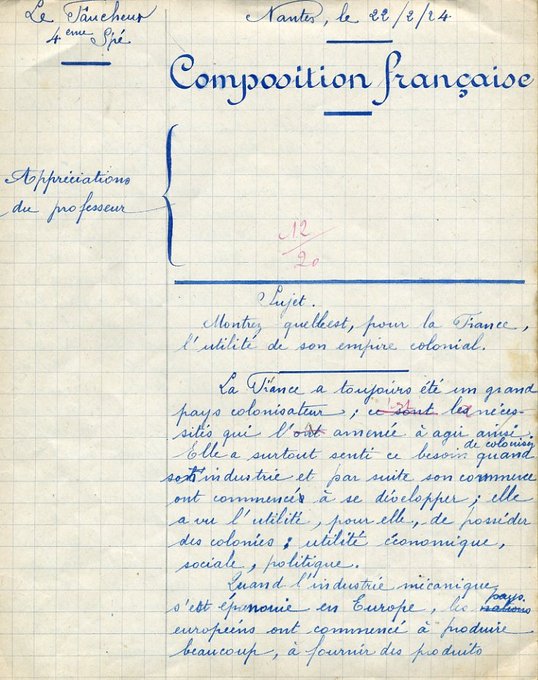 Le Faucheur
4ème Spé
Nantes, le 22/2/24
Composition française
Appréciations
du professeur
12/20
Sujet.
Montrez quelle est, pour la France,
l'utilité de son empire colonial.
La France a toujours été un grand
pays colonisateur ; ce sont les néces-
sités qui l'ont amenée à agir ainsi.
Elle a surtout senti ce besoin de coloniser quand
son industrie et par suite son commerce
ont commencé à se développer ; elle
a vu l'utilité, pour elle, de posséder
des colonies ; utilité économique,
sociale, politique.
Quand l'industrie mécanique
s'est épanouie en Europe, les pays
européens ont commencé à produire
beaucoup, à fournir des produits